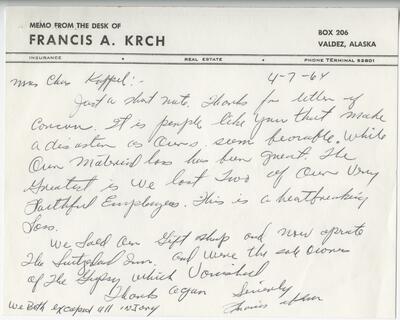 MEMO FROM THE DESK OF
FRANCIS A. KRCH
BOX 206
VALDEZ, ALASKA
INSURANCE • REAL ESTATE • PHONE TERMINAL 52801
4-7-64
Mrs Chas Koppel:-
Just a short note. Thanks for letter of
Concern. It is people like you that make
a disaster as Ours, seem bearable. While
Our Material loss has been great. The
Greatest is We lost Two of Our Very
Faithful Employees. This is a heartbreaking
Loss.
We Sold Our Gift shop and now operate
The Switzerland Inn. and were the sole Owners
of The Gypsy which Vanished
Thanks again Sincerely
We Both escaped all injury